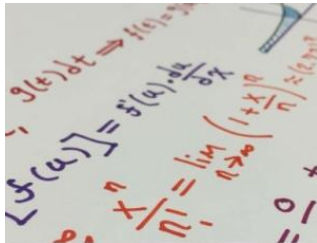 g(t)dt ⇒ f(t) = g
[f(u)] = f'(u) · du/dx
x^n/n! = lim n→∞ (1 + x/n)^n ≈ (2.